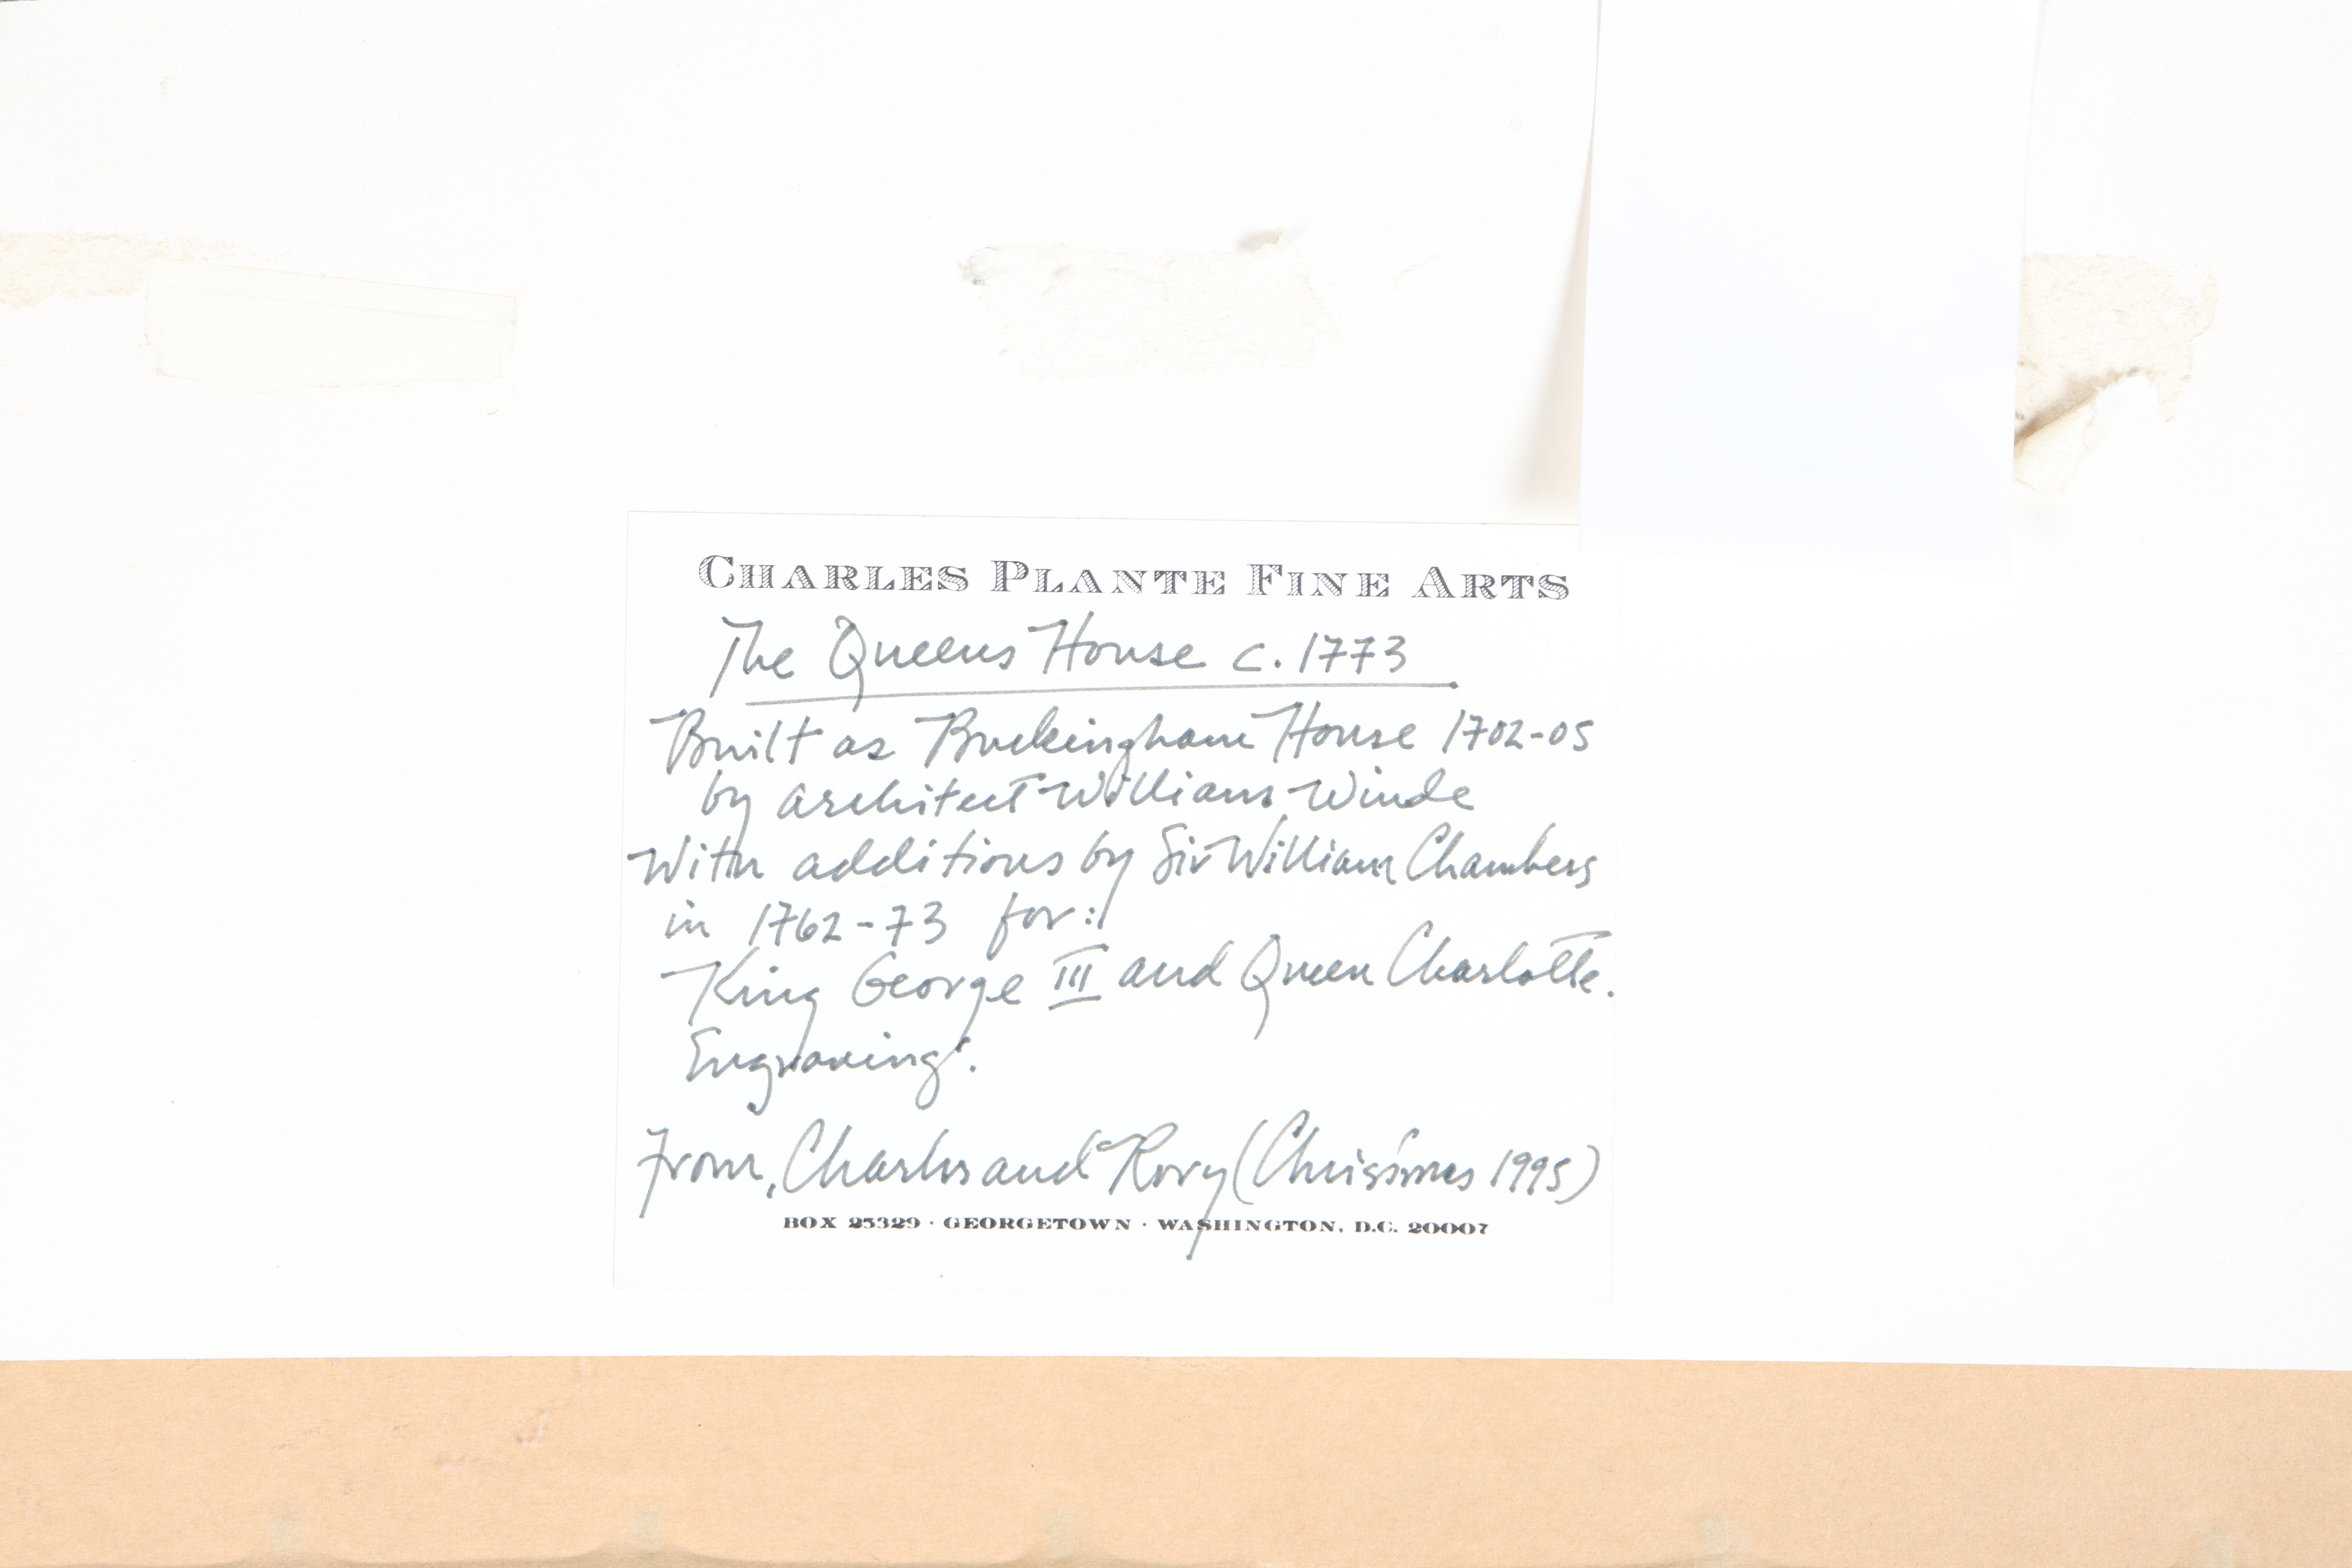 CHARLES PLANTE FINE ARTS
The Queens House c. 1773
Built as Buckingham House 1702-05
by architect William Winde
With additions by Sir William Chambers
in 1762-73 for:
King George III and Queen Charlotte.
Engraving:
From, Charles and Rory (Chrissmes 1995)
BOX 25329 · GEORGETOWN · WASHINGTON, D.C. 20007